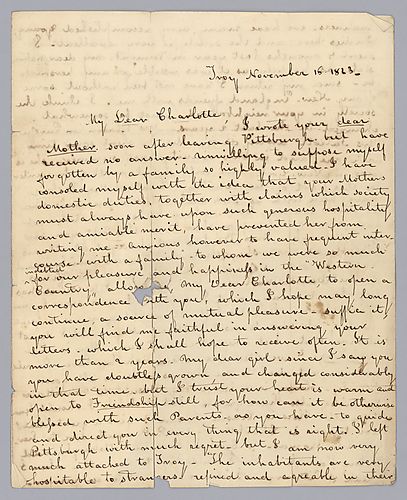 Troy November 16 1823_
My Dear Charlotte
I wrote your dear
Mother soon after leaving Pittsburgh but have
received no answer_ unwilling to suppose myself
forgotten by a family so highly valued_ I have
consoled myself with the idea that your Mothers
domestic duties, together with claims which society
must always have upon such generous hospitality
and amiable merit, have prevented her from
writing me_ anxious however to have frequent inter
course with a family to whom we were so much
indebted
for our pleasure and happiness in the "Western
Country" allow me, my dear Charlotte, to open a
correspondence with you, which I hope may long
continue a source of mutual pleasure_ suffice it,
you will find me faithful in answering your
letters_ which I shall hope to receive often. It is
more than 2 years, my dear girl, since I saw you
you have doubtless grown and changed considerably
in that time_ but I trust your heart is warm and
open to Friendship still, for how can it be otherwise
blessed with such Parents as you have_ to guide
and direct you in every thing that is right. I left
Pittsburgh with much regret_ but I am now very
much attached to Troy_ The inhabitants are very
hospitable to strangers, refined and agreable in their